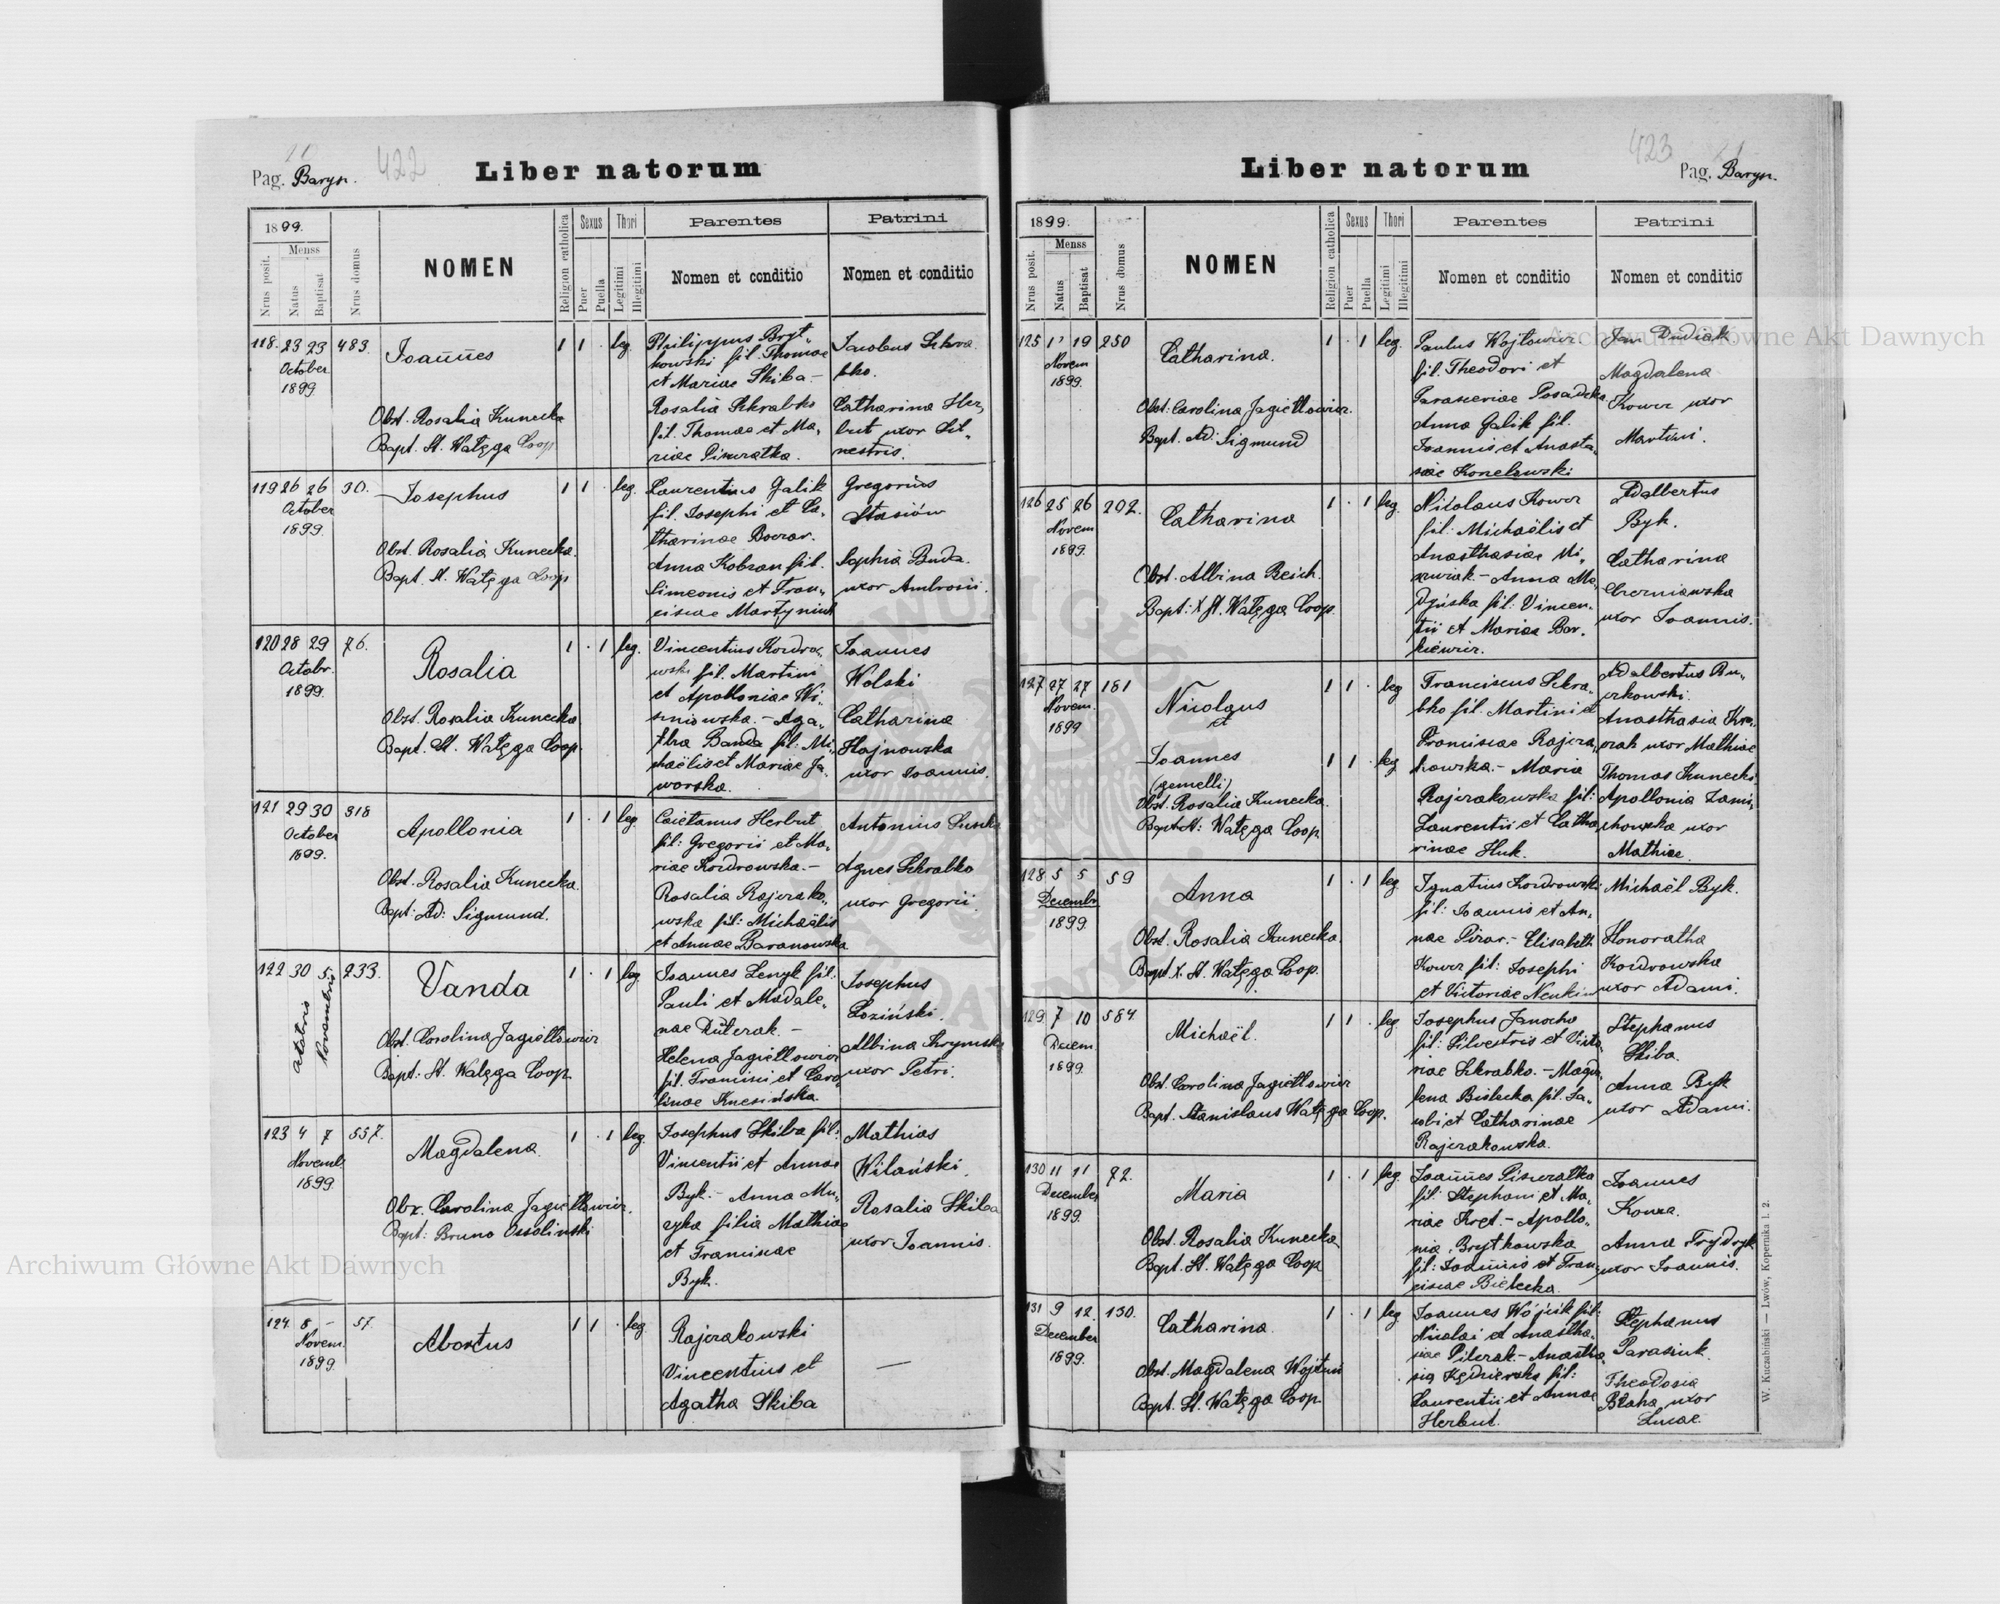 Pag. Barysz.
422
Liber natorum
1899.
Menss
Nrus posit.
Natus
Baptisat
Nrus domus
NOMEN
Religion catholica
Sexus
Puer
Puella
Thori
Legitimi
Illegitimi
Parentes
Nomen et conditio
Patrini
Nomen et conditio
118. 23 23 483.
October
1899
Joannes
Obst. Rosalia Kunecka
Bapt. St. Wałęga Coop
1 1 . leg.
Philippus Bryt-
kowski fil. Thomae
et Mariae Skiba.-
Rosalia Skrabko
fil. Thomae et Ma-
riae
Jacobus Skra
bko.
Catharina Her,
but uxor Sil-
vestris.
119 26 26 30.
October
1899.
Josephus
Obst. Rosalia Kunecka.
Bapt. St. Wałęga Coop
1 1 . leg.
Laurentius Galik
fil. Josephi et Ca-
tharinae
Anna Kobran fil.
Simeonis et Fran-
ciscae Martyniuk
Gregorius
Stasiów
Sophia Buda.
uxor Ambrosii.
120 28 29 76.
Octobr.
1899.
Rosalia
Obst. Rosalia Kunecka
Bapt. St. Wałęga Coop.
1 . 1 leg.
Vincentius Kozdro-
wski fil. Martini
et Apolloniae Wi-
śniowska. - Aga-
tha Banda fil: Mi-
chaëlis et Mariae Ja-
worska.
Joannes
Wolski
Catharina
Hajnowska
uxor Joannis.
121 29 30 318
October
1899.
Apollonia
Obst. Rosalia Kunecka.
Bapt: Ad: Sigmund.
1 . 1 leg
Caietanus Herbut
fil: Gregorii et Ma-
riae Kozdrowska.-
Rosalia Rajzrako-
wska fil: Michaëlis
et Annae Baranowska
Antonius
Agnes Skrabko
uxor Gregorii.
122 30 5. 233.
Octobris
Novembris
Vanda
Obst. Carolina Jagiełłowicz
Bapt: St. Wałęga Coop.
1 . 1 leg
Joannes Lenyk fil:
Pauli et Madale-
nae
Helena Jagiełłowicz
fil. Francisci et Caro
linae
Josephus
Łoziński.
Albina
uxor Petri.
123 4 7 557.
Novemb.
1899.
Magdalena.
Carolina Jagiełłowicz.
Bapt: Bruno Ossolinski
1 . 1 leg
Josephus Skiba fil:
Vincentii et Annae
Byk.- Anna Mu-
zyka filia Mathiae
et Franciscae
Byk.
Mathias
Wilański.
Rosalia Skiba
uxor Joannis.
124. 8 - 57.
Novem.
1899.
Abortus
1 1 . leg
Rajzrakowski
Vincentius et
Agatha Skiba
—
423
Liber natorum
Pag. Barysz.
1899.
Menss
Nrus posit.
Natus
Baptisat
Nrus domus
NOMEN
Religion catholica
Sexus
Puer
Puella
Thori
Legitimi
Illegitimi
Parentes
Nomen et conditio
Patrini
Nomen et conditio
125 19 250
Novem
1899.
Catharina.
Obst: Carolina Jagiełłowicz.
Bapt. Ad: Sigmund
1 . 1 leg.
Paulus Wojtowicz.
fil. Theodori et
Parasceviae Posadzka
Anna Galik fil.
Joannis et Anasta-
siae
Jan Dudiak.
Magdalena
Kowcz uxor
Martini.
126 25 26 202.
Novem
1899.
Catharina
Obst. Albina Reich.
Bapt: X St. Wałęga Coop.
1 . 1 leg.
Nicolaus Kowcz
fil: Michaëlis et
Anasthasiae Mi-
- Anna
fil: Vincen-
tii et Mariae Bar-
kiewicz.
Adalbertus
Byk.
Catharina
Czerniawska
uxor Joannis.
127 27 27 181
Novem.
1899
Nicolaus
et
Joannes
(gemelli)
Obst. Rosalia Kunecka.
Bapt St: Wałęga Coop
1 1 . leg
1 1 . leg
Franciscus Skra-
bko fil. Martini et
Franciscae Rajzra-
kowska.- Maria
Rajzrakowska fil:
Laurentii et Catha
rinae Huk.
Adalbertus Bu-
czkowski.
Anasthasia
uxor Mathiae
Thomas Kunecki
Apollonia
uxor
Mathiae.
128. 5 5 59
Decembr
1899.
Anna
Obst. Rosalia Kunecka.
Bapt. X. St. Wałęga Coop.
1 . 1 leg
Ignatius Kozdrowski
fil: Joannis et An-
nae - Elisabeth
Kowcz fil: Josephi
et Victoriae
Michaël Byk.
Honoratha
Kozdrowska
uxor Adami.
129 7 10 584
Decem.
1899.
Michaël.
Obst. Carolina Jagiełłowicz
Bapt. Stanislaus Wałęga Coop.
1 1 . leg
Josephus Janocha
fil: Silvestris et Victo
riae Skrabko. - Magda
lena Bielecka fil. Ja-
cobi et Catharinae
Rajzrakowska.
Stephanus
Skiba.
Anna Byk
uxor Adami.
130 11 11 72.
December
1899.
Maria
Obst. Rosalia Kunecka
Bapt. St. Wałęga Coop
1 . 1 leg
Joannes
fil: Stephani et Ma-
riae Kret. - Apollo-
nia Brytkowska
fil: Joannis et Fran-
ciscae Bielecka.
Joannes
Anna Frydryk
uxor Joannis.
131 9 12. 130.
December
1899.
Catharina.
Obst. Magdalena
Bapt. St. Wałęga Coop.
1 . 1 leg
Joannes Wójcik fil:
Nicolai et Anastha-
siae - Anastha
sia fil:
Laurentii et Annae
Herbut.
Stephanus
Parasiuk.
Theodosia
Blaha, uxor
Lucae.
W. Kuczabiński — Lwów, Kopernika l. 2.
Archiwum Główne Akt Dawnych
Archiwum Główne Akt Dawnych